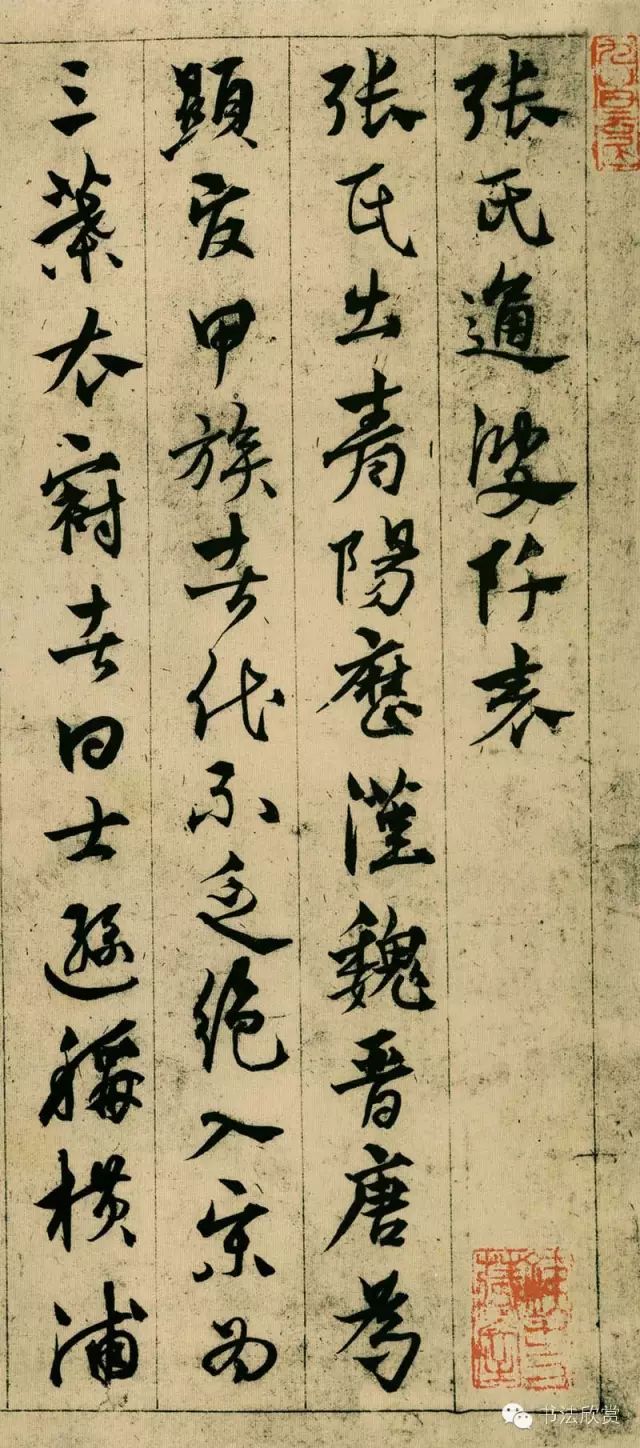 張氏通波阡表
張氏出青陽歷漢魏晉唐為
顯甲族者代不乏絕入宋為
三葉衣冠者曰士遜稱橫浦
书法欣赏